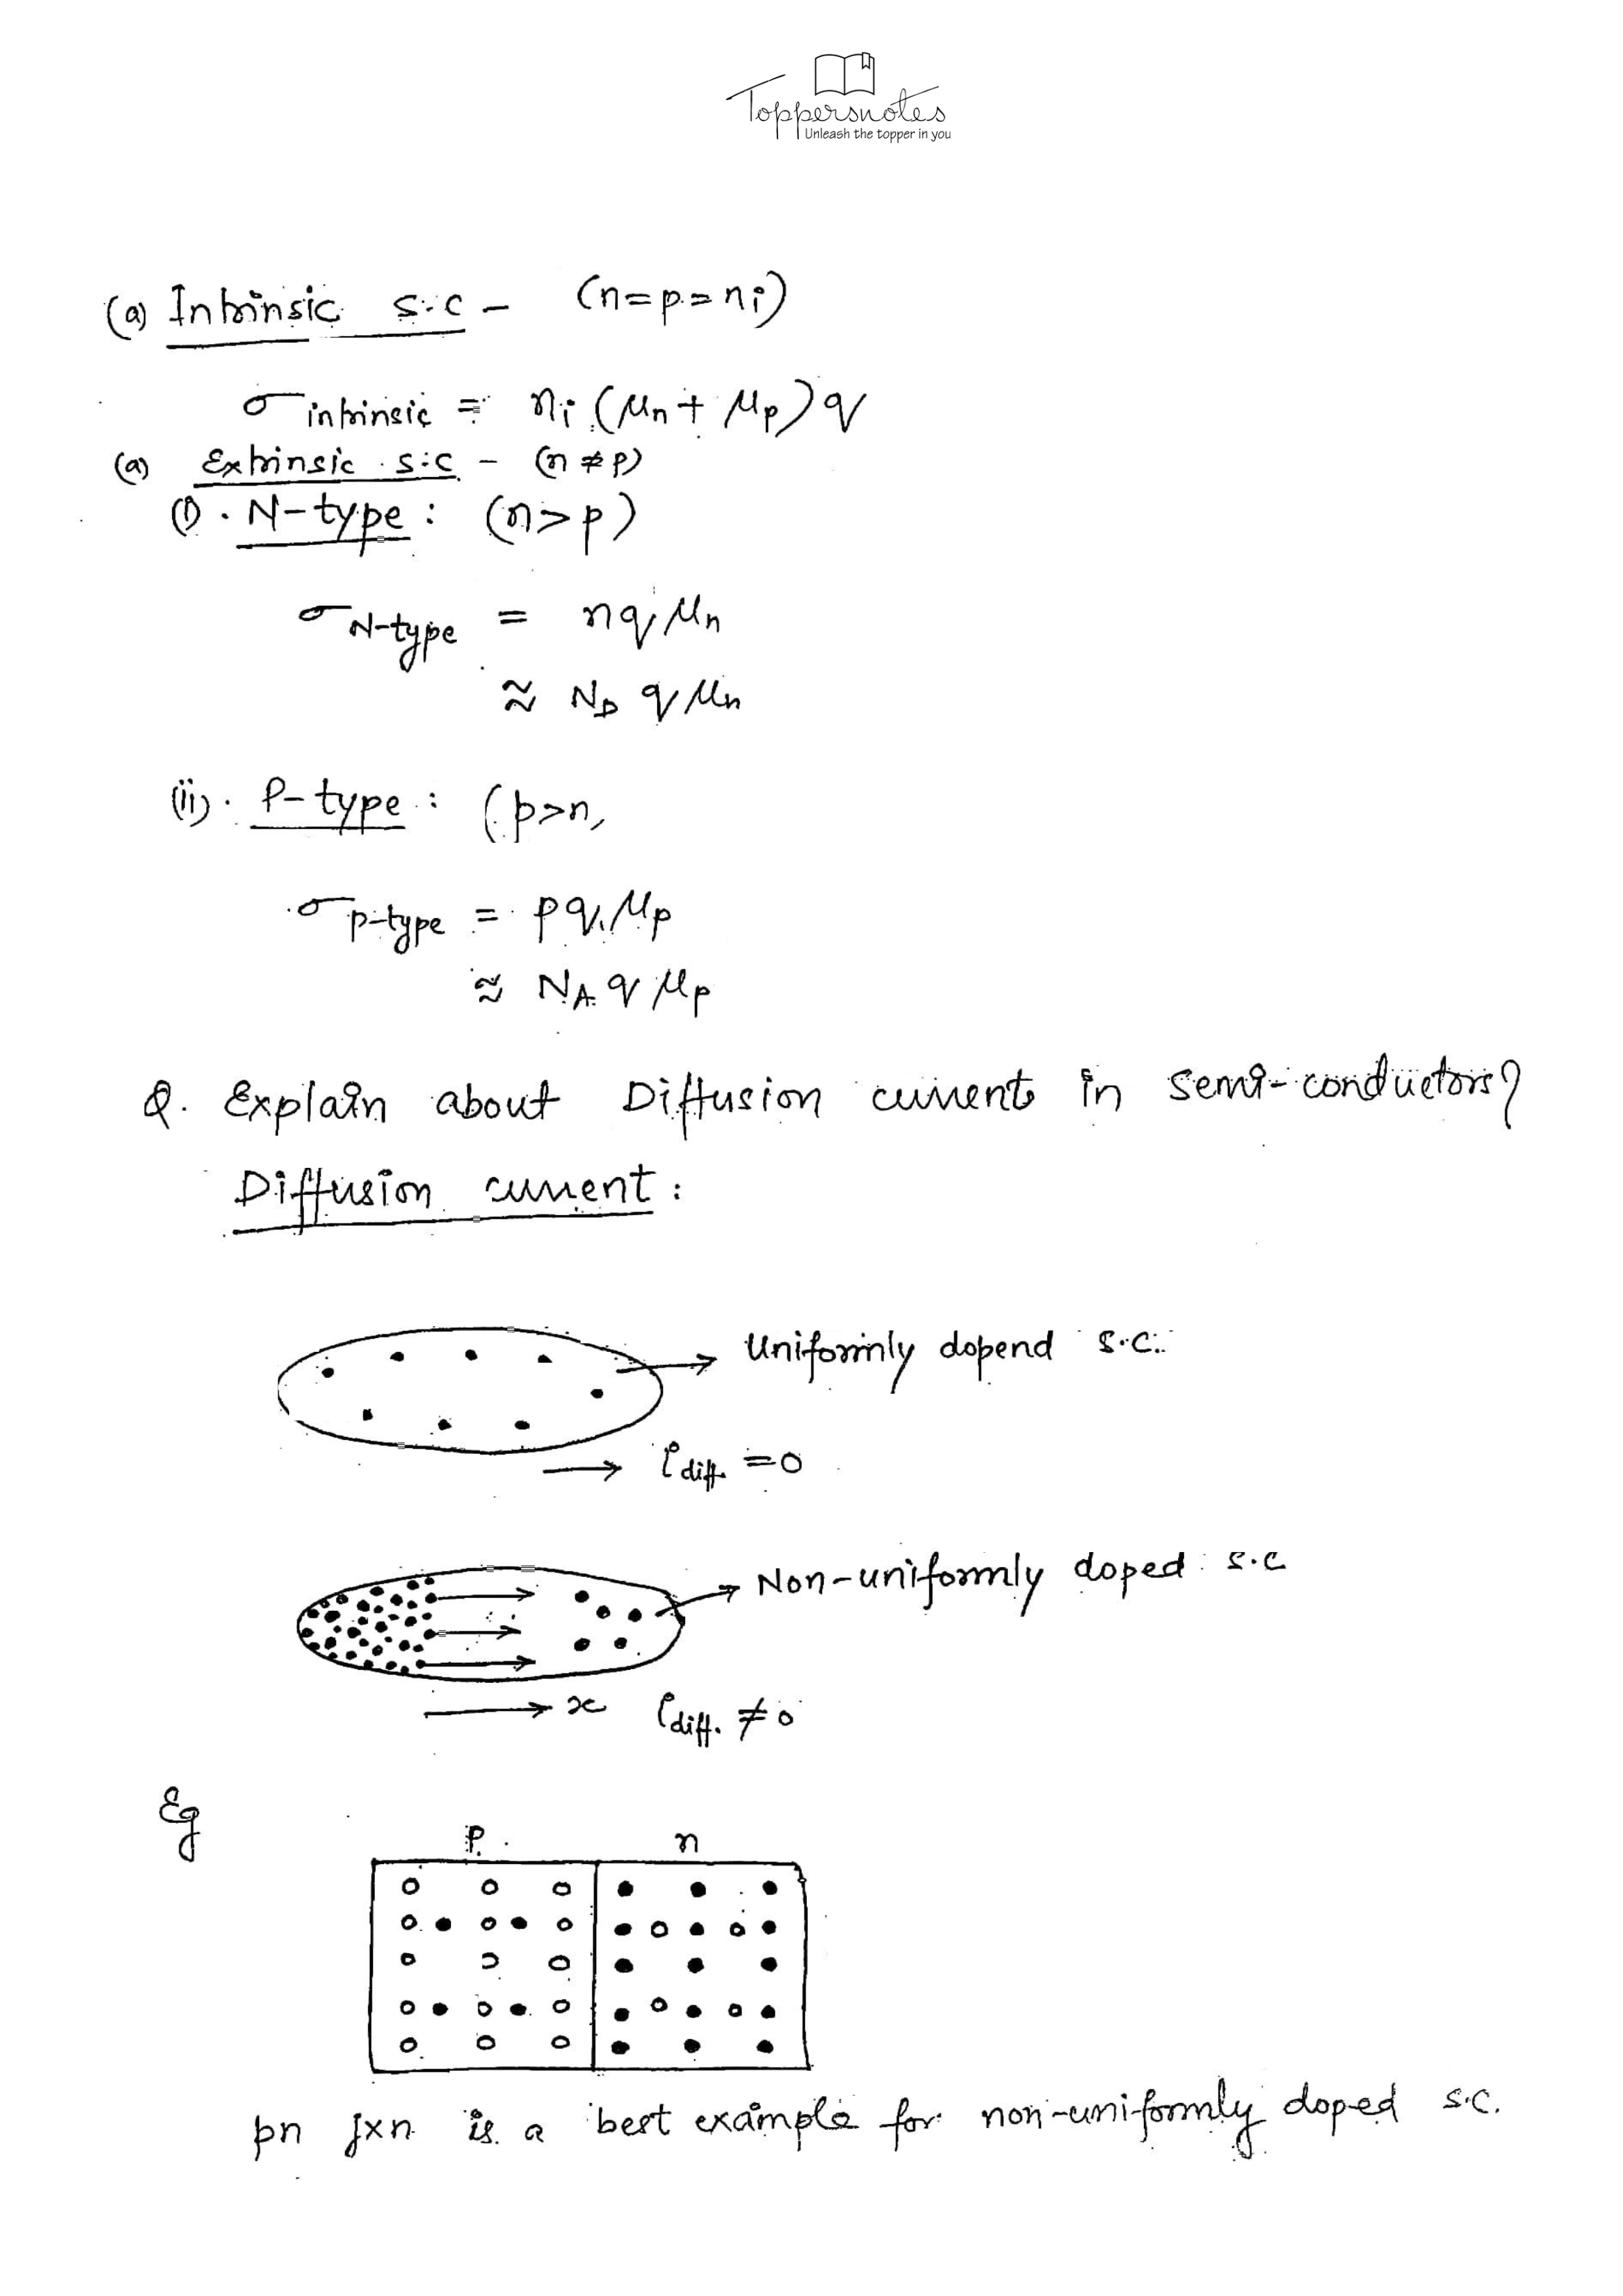 Toppersnotes
Unleash the topper in you
(a) Intrinsic s.c - (n=p=ni)
σ intrinsic = ni (μn + μp) q
(a) Extrinsic s.c - (n ≠ p)
(i). N-type : (n>p)
σ N-type = nq μn
≈ ND q μn
(ii). P-type : (p>n,
σ p-type = pq μp
≈ NA q μp
Q. Explain about Diffusion currents in semi-conductors?
Diffusion current :
Uniformly dopend s.c.
→ idiff. = 0
Non-uniformly doped s.c
→ x idiff. ≠ 0
Eg
P n
pn jxn is a best example for non-uniformly doped s.c.